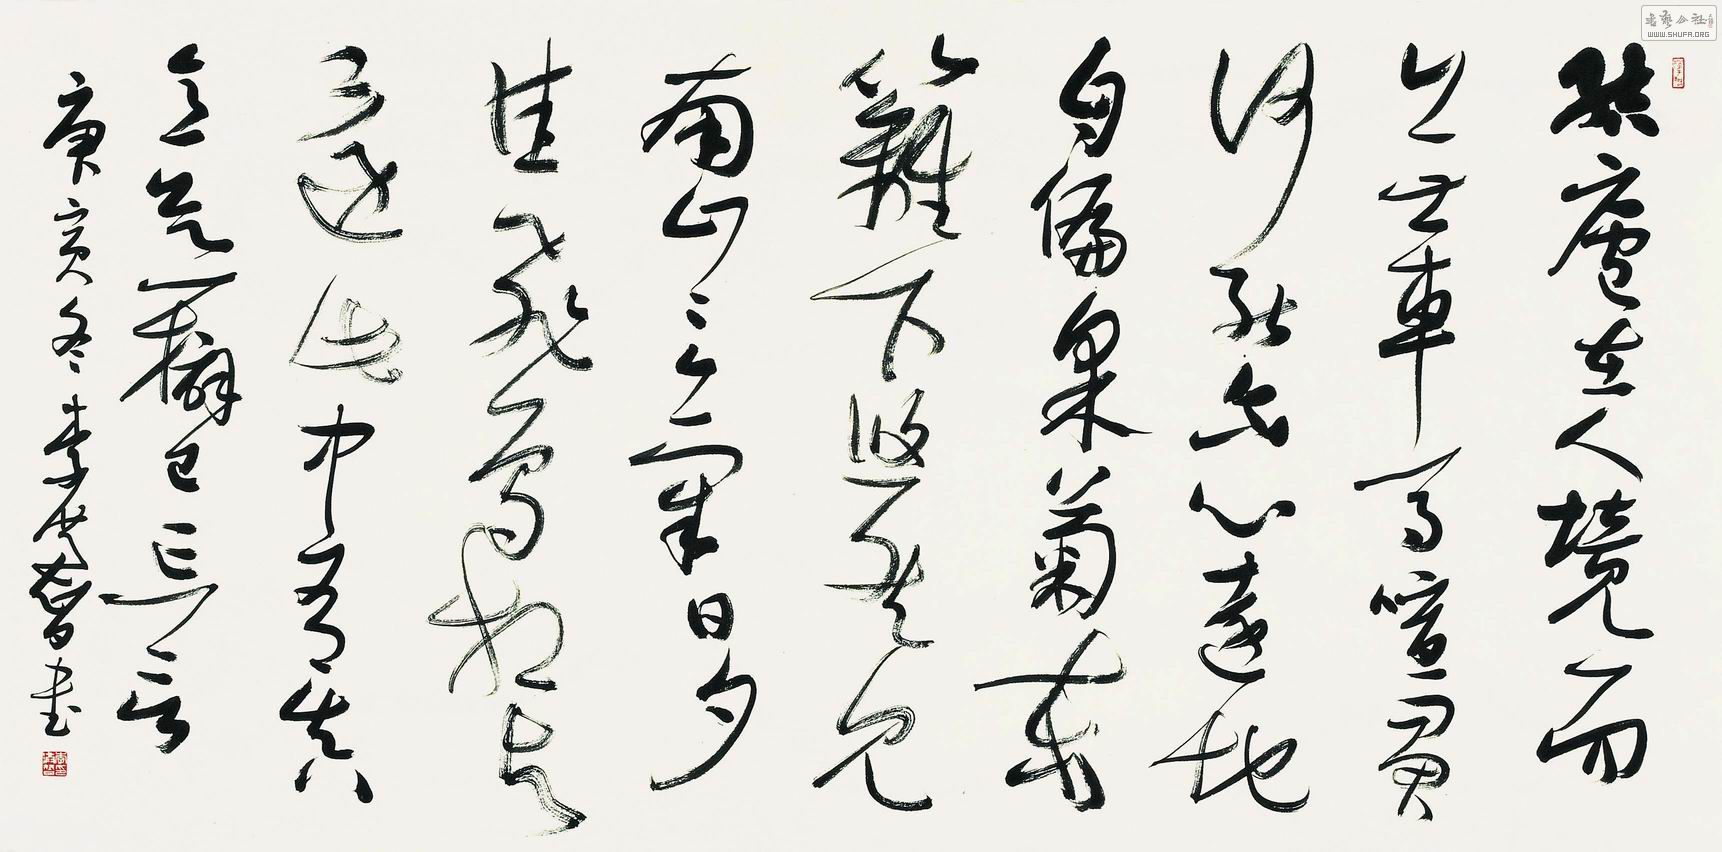 書藝公社
WWW.SHUFA.ORG
結廬在人境而
無車馬喧問君
何能爾心遠地
自偏采菊東
籬下悠然見
南山〻氣日夕
佳飛鳥相与
還此中有真
意欲辨已忘言
庚寅冬李書